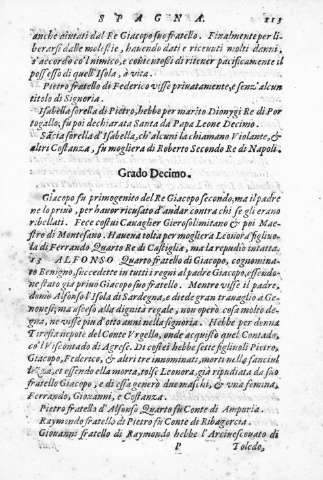 SPAGNA. 113
anche aiutati dal Re Giacopo suo fratello. Finalmente per li-
berarsi dalle molestie, havendo dati e ricevuti molti danni,
s'accordò co'l nimico, e contentossi di ritener pacificamente il
possesso di quell'Isola, à vita.
Pietro fratello di Federico visse privatamente, e senz'alcun
titolo di Signoria.
Isabella sorella di Pietro, hebbe per marito Dionygi Re di Por-
togallo, fu poi dechiarata Santa da Papa Leone Decimo.
Sacta sorella d'Isabella, ch'alcuni la chiamano Violante, &
altri Costanza, fu mogliera di Roberto Secondo Re di Napoli.
Grado Decimo.
Giacopo fu primogenito del Re Giacopo secondo, ma il padre
ne lo privò, per haver ricusato d'andar contra chi se gli erano
ribellati. Fece costui Cavaglier Gierosolimitano & poi Mae-
stro di Montesano. Haveva tolta per mogliera Leonora figliuo-
la di Ferrando Quarto Re di Castiglia, ma la repudiò intatta.
13 ALFONSO Quarto fratello di Giacopo, cognomina-
to Benigno, succedette in tutti i regni al padre Giacopo, essendo-
ne stato già privo Giacopo suo fratello. Mentre visse il padre,
domò Alfonso l'Isola di Sardegna, e diede gran travaglio a Ge-
novesi; ma asceso alla dignità regale, non operò cosa molto de-
gna, ne visse più d'otto anni nella signoria. Hebbe per donna
Tiresia nipote del Conte Urgello, onde acquistò quel Contado,
co'l Viscontado di Agreso. Di costei hebbe sette figliuoli Pietro,
Giacopo, Federico, & altri tre innominati, morti nella fanciul-
lezza, et essendo ella morta, tolse Leonora, già ripudiata da suo
fratello Giacopo, e di essa generò duo maschi, & una fémina,
Ferrando, Giovanni, e Costanza.
Pietro fratello d'Alfonso Quarto fù Conte di Ampuria.
Raymondo fratello di Pietro fu Conte di Ribagorcia.
Giovanni fratello di Raymondo hebbe l'Arcivescovato di
P Toledo,